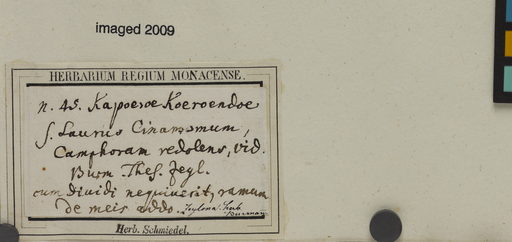 imaged 2009
HERBARIUM REGIUM MONACENSE.
n. 45. Kapoeroe Koeroendoe
s. Laurus Cinamomum,
Camphoram redolens, vid.
Burm. Thes. Zeyl.
cum dividi nequiverit, ramum
de meis addo. Zeylona. herb.
Burman
Herb. Schmiedel.